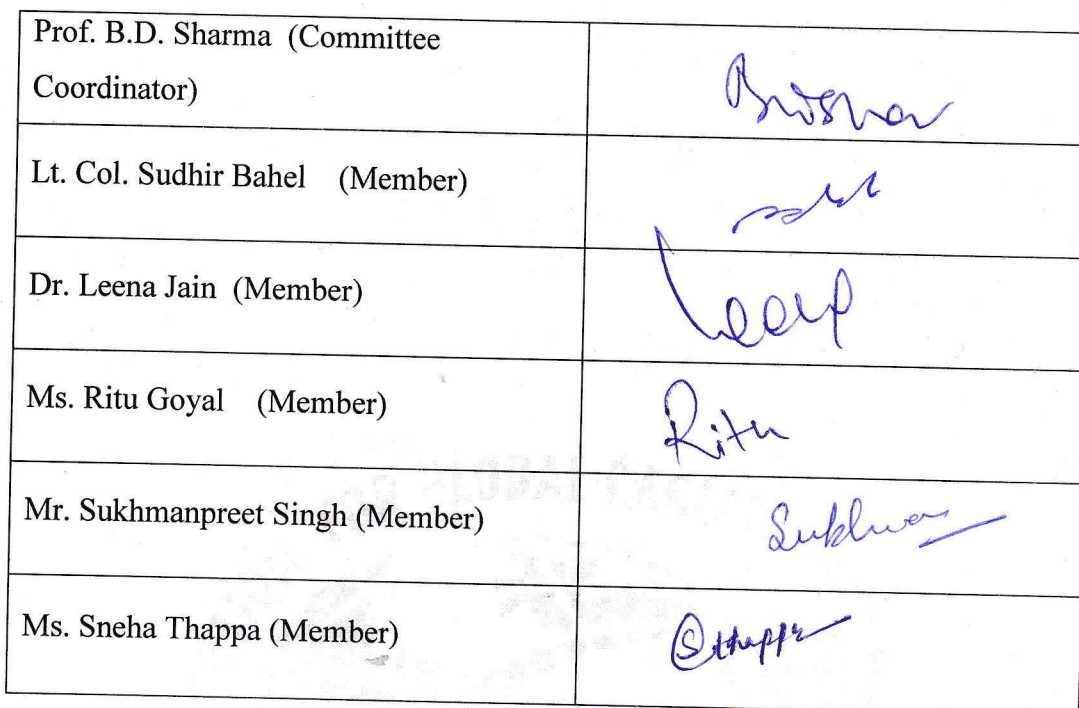 Prof. B.D. Sharma (Committee
Coordinator)
Lt. Col. Sudhir Bahel (Member)
Dr. Leena Jain (Member)
Ms. Ritu Goyal (Member)
Ritu
Mr. Sukhmanpreet Singh (Member)
Ms. Sneha Thappa (Member)